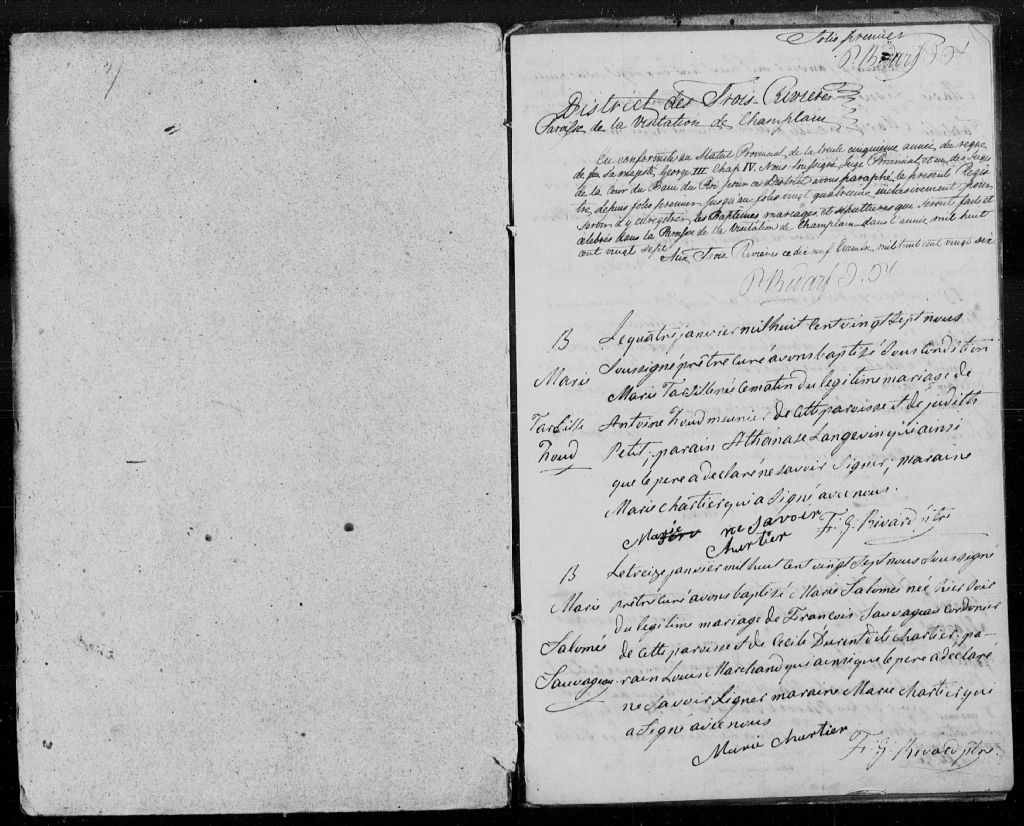 Folio premier
P. Bedard
District des Trois-Rivieres
Paroisse de la Visitation de Champlain
En conformité au Statut Provincial de la trente cinquieme année du regne
de feu Sa majesté George III Chap IV. Nous Soussigné Juge Provincial et un des Juges
de la Cour du Banc du Roi pour ce District avons paraphé le present Regis
tre, depuis folio premier jusqu'au folio vingt quatrieme inclusivement pour
servir à y enregitrer les Baptemes mariages et sepultures qui seront faits et
celebrés dans la Paroisse de la Visitation de Champlain dans l'année mil huit
cent vingt sept
Aux Trois Rivieres ce dix neuf mil huit cent vingt six
P. Bedard
B
Marie
Tarsille
houd
Le quatre janvier mil huit cent vingt sept nous
Soussigné prêtre curé avons baptisé Sous condition
Marie Tarsille née le matin du legitime mariage de
Antoine houd meunier de cette paroisse et de judith
Petit, parain Athanase Langevin qui ainsi
que le pere a declaré ne savoir Signer, maraine
Marie Chartier qui a Signé avec nous.
Marie ne savoir
Chartier
F. G. Rivard ptre
B
Marie
Salomé
Sauvageau
Le treize janvier mil huit cent vingt Sept nous Soussigné
prêtre curé avons baptisé Marie Salomé née hier Soir
du legitime mariage de François Sauvageau cordonier
de cette paroisse et de Cecile Durent dite Chartier, pa-
rain Louis Marchand qui ainsi que le pere a declaré
ne Savoir Signer maraine Marie Chartier qui
a Signé avec nous
Marie Chartier
F. G. Rivard ptre